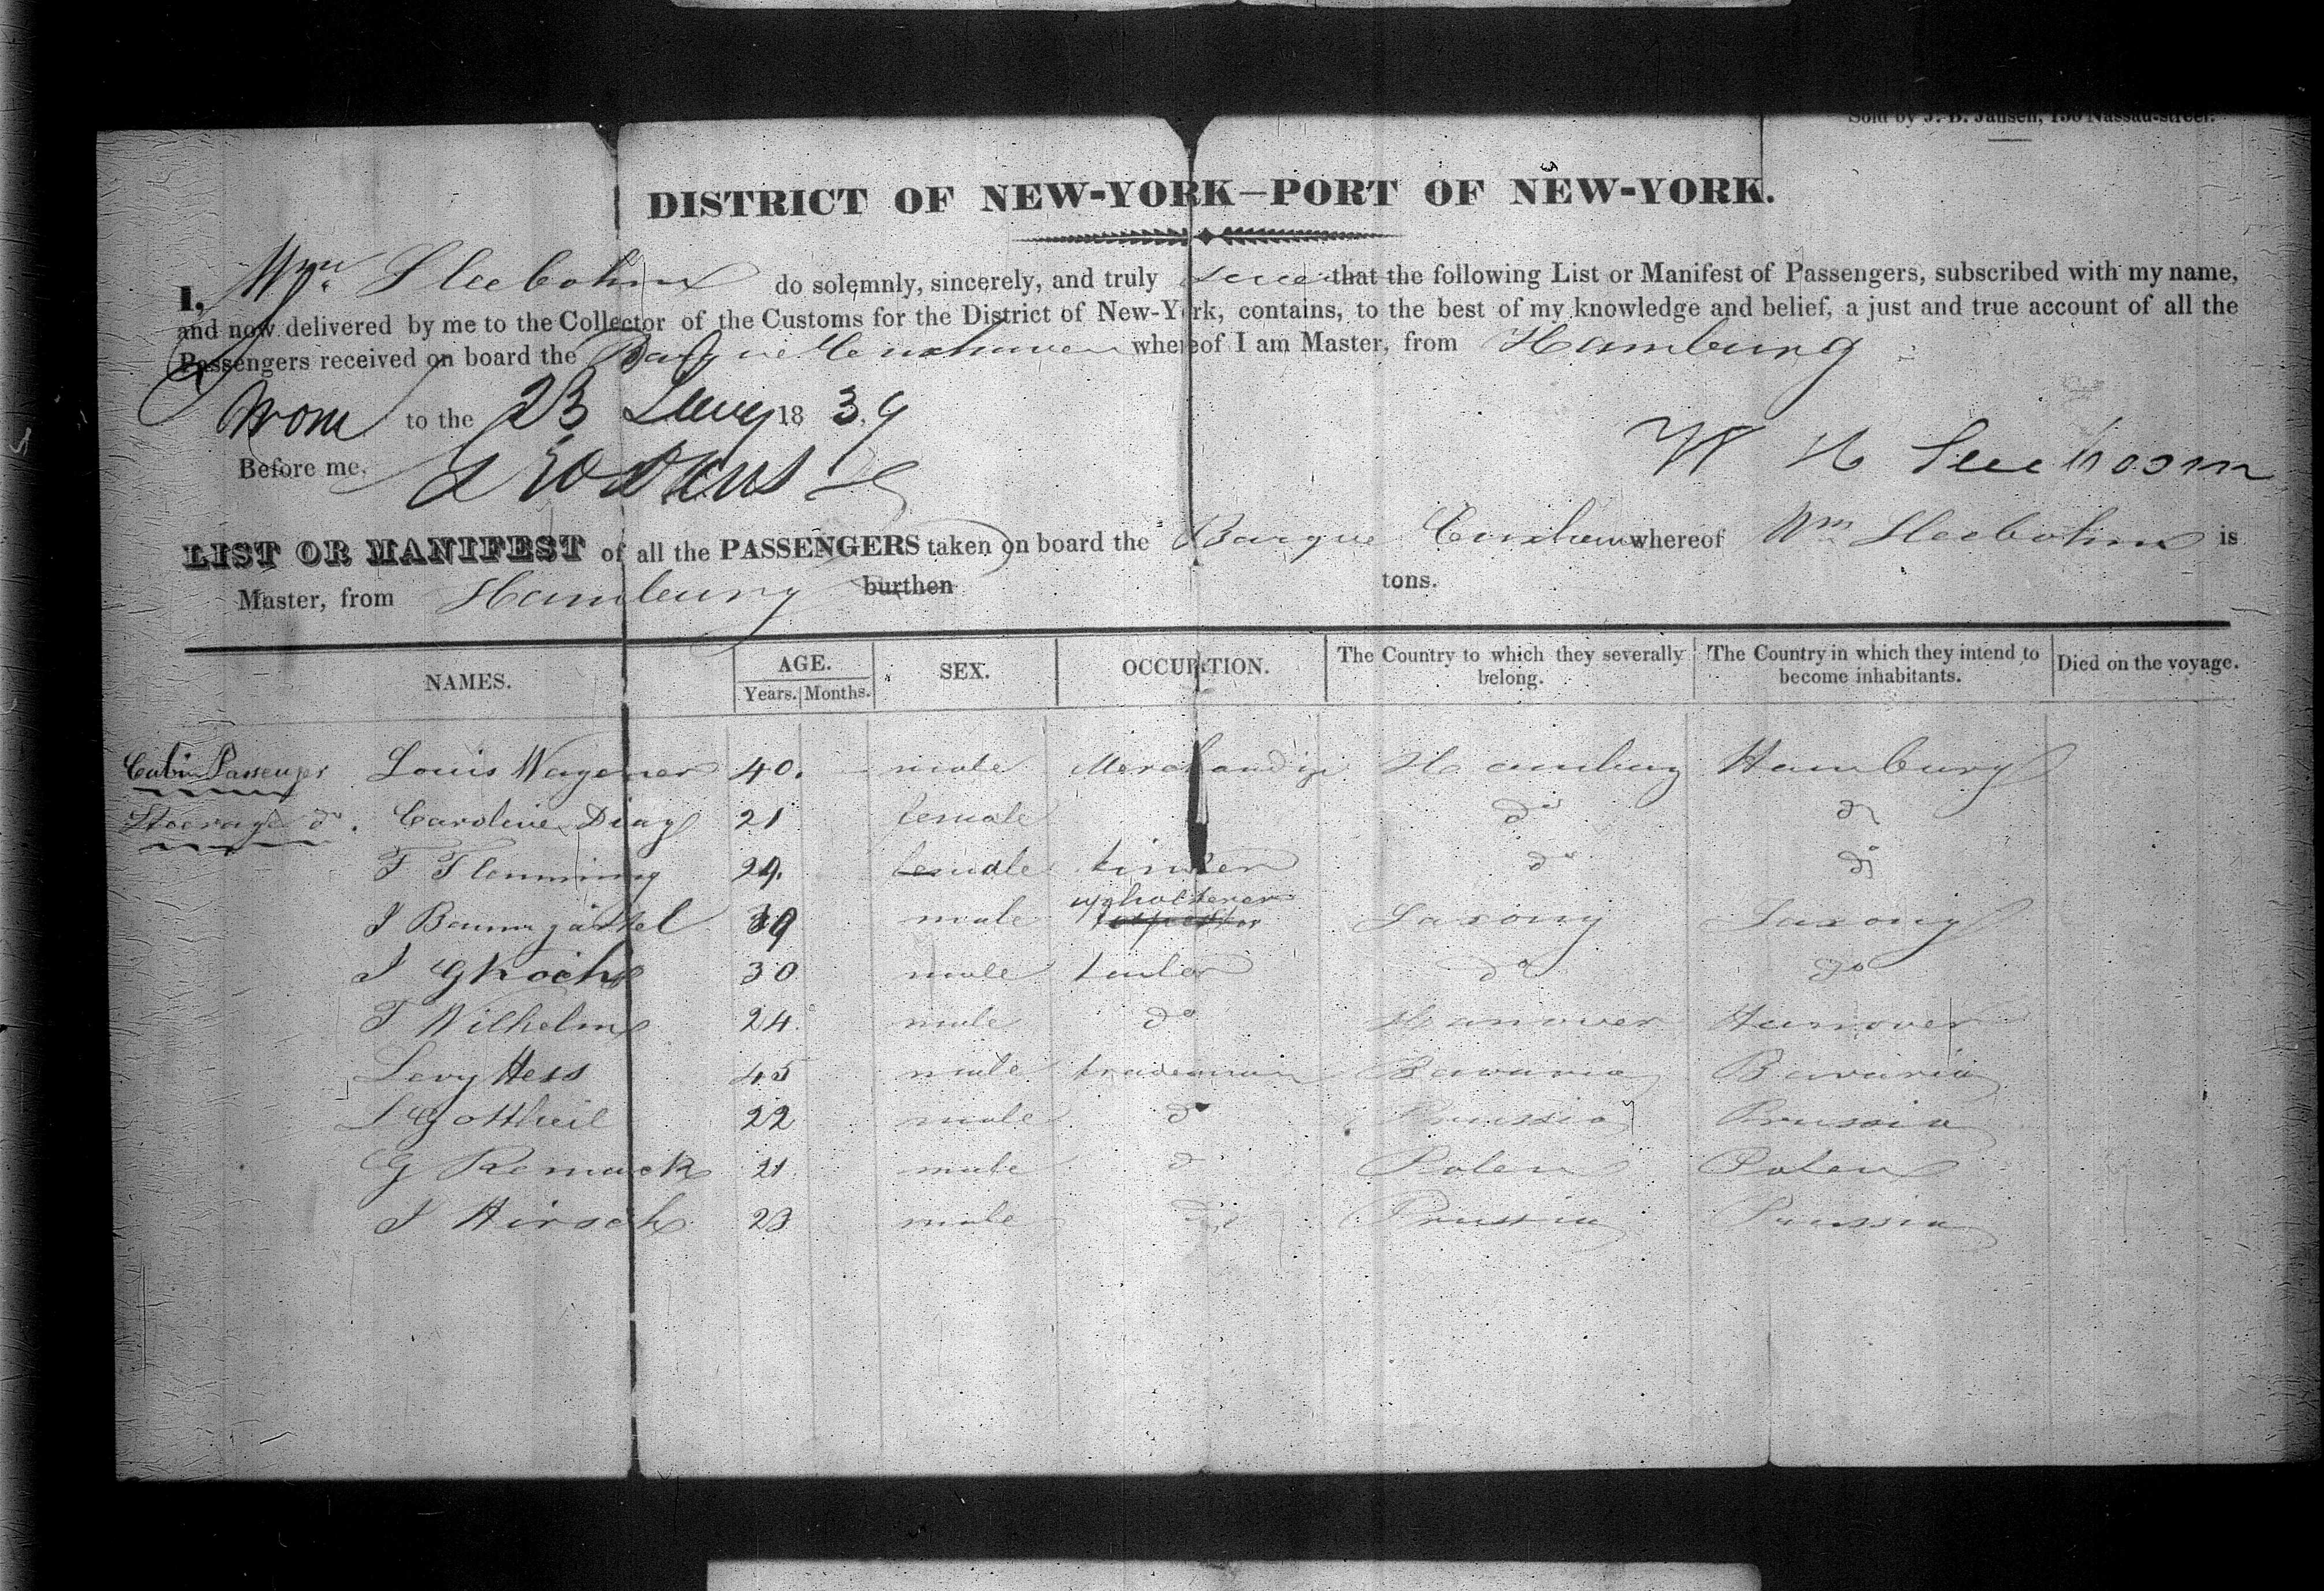 Sold by J. B. Jansen, 156 Nassau-street.
DISTRICT OF NEW-YORK—PORT OF NEW-YORK.
I, Wm. Sleebohm do solemnly, sincerely, and truly that the following List or Manifest of Passengers, subscribed with my name,
and now delivered by me to the Collector of the Customs for the District of New-York, contains, to the best of my knowledge and belief, a just and true account of all the
Passengers received on board the Barque whereof I am Master, from Hamburg
to the 23 18 39
Before me,
W H
LIST OR MANIFEST of all the PASSENGERS taken on board the Barque whereof Wm Sleebohm is
Master, from Hamburg burthen tons.
NAMES. AGE. Years. Months. SEX. OCCUPATION. The Country to which they severally belong. The Country in which they intend to become inhabitants. Died on the voyage.
Cabin Passenger Louis Wagener 40. male Hamburg Hamburg
Steerage do. Caroline 21 female do do
F Flemming 29. male do do
J Baumgärtel 39 male upholterer Saxony Saxony
J 30 male do do
F Wilhelms 24 male do Hanover Hanover
Levy Hess 45 male trademan Bavaria Bavaria
Gottheil 22 male do Prussia Prussia
G Remack 21 male do Polen Polen
J Hirsch 23 male do Prussia Prussia